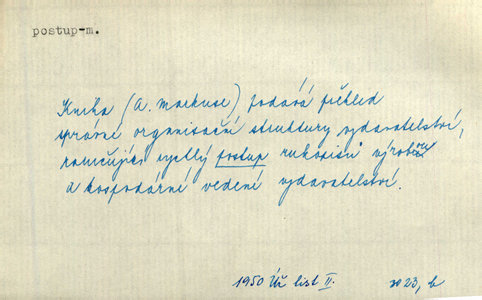 postup-m.
Kniha (A. Markuse) podává přehled
správné organisační struktury vydavatelství,
zaručující rychlý postup rukopisů výrobou
a hospodárné vedení vydavatelství.
1950 Úř list II.